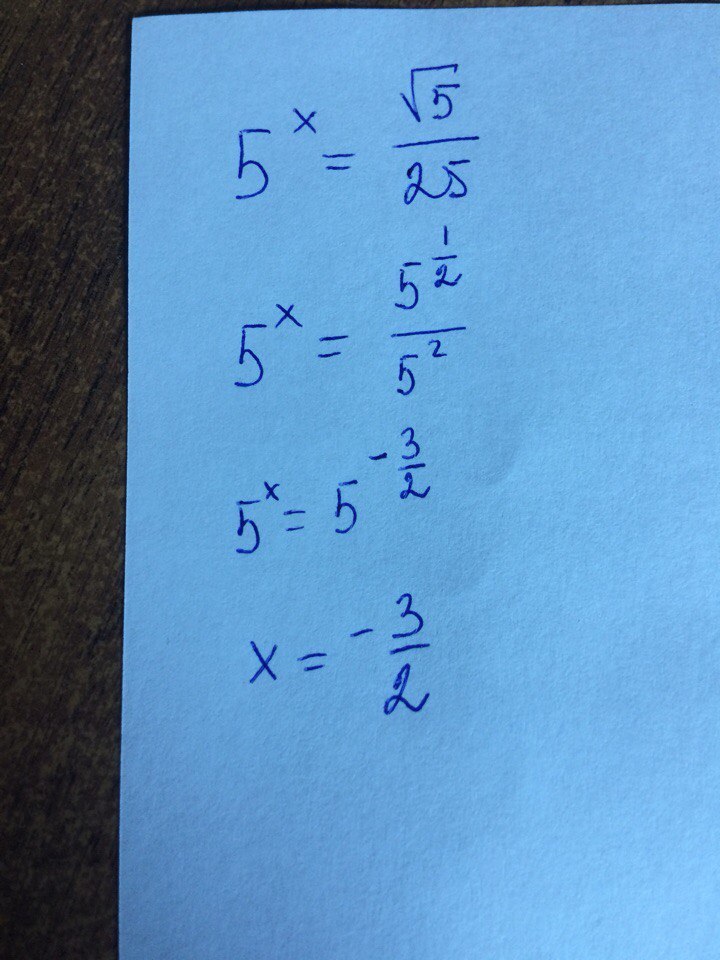 5^x = √5/25
5^x = 5^(1/2)/5^2
5^x = 5^(-3/2)
x = -3/2